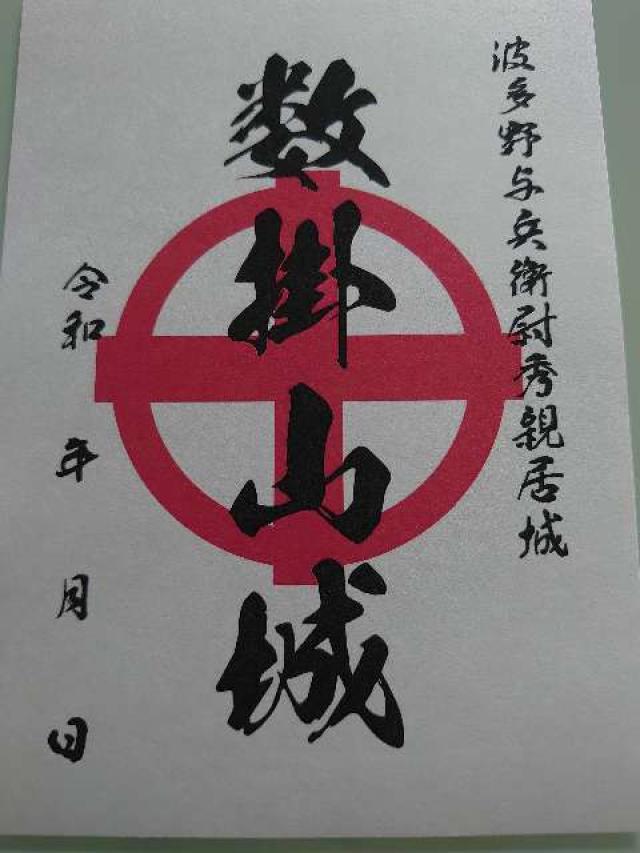 波多野与兵衛尉秀親居城
数掛山城
令和 年 月 日